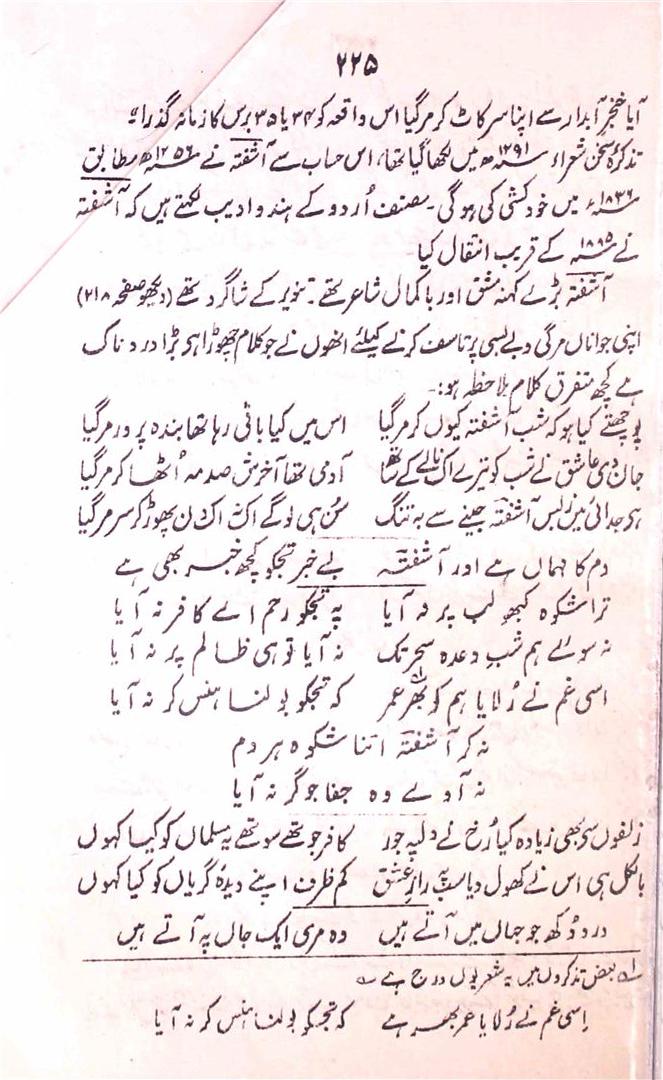 ۲۲۵
آیا خنجر آبدار سے اپنا سر کاٹ کر مر گیا اس واقعہ کو ۳۴ یا ۳۵ برس کا زمانہ گذرا"
تذکرہ سخن شعراء ۱۲۹۱ھ میں لکھا گیا تھا، اس حساب سے آشفتہ نے ۱۲۵۶ھ مطابق
۱۸۳۶ء میں خودکشی کی ہوگی۔ مصنف اُردو کے ہندو ادیب لکھتے ہیں کہ آشفتہ
نے ۱۸۸۵ء کے قریب انتقال کیا
آشفتہ بڑے کہنہ مشق اور باکمال شاعر تھے۔ تنویر کے شاگرد تھے (دیکھو صفحہ ۲۱۸)
اپنی جواناں مرگی و بے بسی پر تاسف کرنے کیلئے انھوں نے جو کلام چھوڑا ہی بڑا دردناک
ہے کچھ متفرق کلام ملاحظہ ہو:۔
پوچھتے کیا ہو کہ شب آشفتہ کیوں کر مر گیا اس میں کیا باقی رہا تھا بندہ پرور مر گیا
جان دی عاشق نے شب کو تیرے اک نالے کے ساتھ آدمی تھا آخرش صدمہ اُٹھا کر مر گیا
ہی جدائی میں زبس آشفتہ جینے سے بہ تنگ سُن ہی لو گے اک نہ اک دن پھوڑ کر سر مر گیا
دم کا مہماں ہے اور آشفتہ بے خبر تجکو کچھ خبر بھی ہے
ترا شکوہ کبھو لب پر نہ آیا پہ تجکو رحم اے کافر نہ آیا
نہ سوئے ہم شبِ وعدہ سحر تک نہ آیا تو ہی ظالم پر نہ آیا
اسی غم نے رُلایا ہم کو بھر عمر ؎۱ کہ تجکو بولنا ہنس کر نہ آیا
نہ کر آشفتہ اتنا شکوہ ہر دم
نہ آوے وہ جفا جو گر نہ آیا
زلفوں سی بھی زیادہ کیا رُخ نے دل پہ جور کافر جو تھے سو تھے یہ مسلماں کو کیا کہوں
بالکل ہی اس نے کھول دیا سب پہ رازِ عشق کم ظرف اپنے دیدۂ گریاں کو کیا کہوں
درد دُکھ جو جہاں میں آتے ہیں وہ مری ایک جاں پہ آتے ہیں
؎۱ بعض تذکروں میں یہ شعر یوں درج ہے ؎
اِسی غم نے رُلایا عمر بھر ہے کہ تجکو بولنا ہنس کر نہ آیا